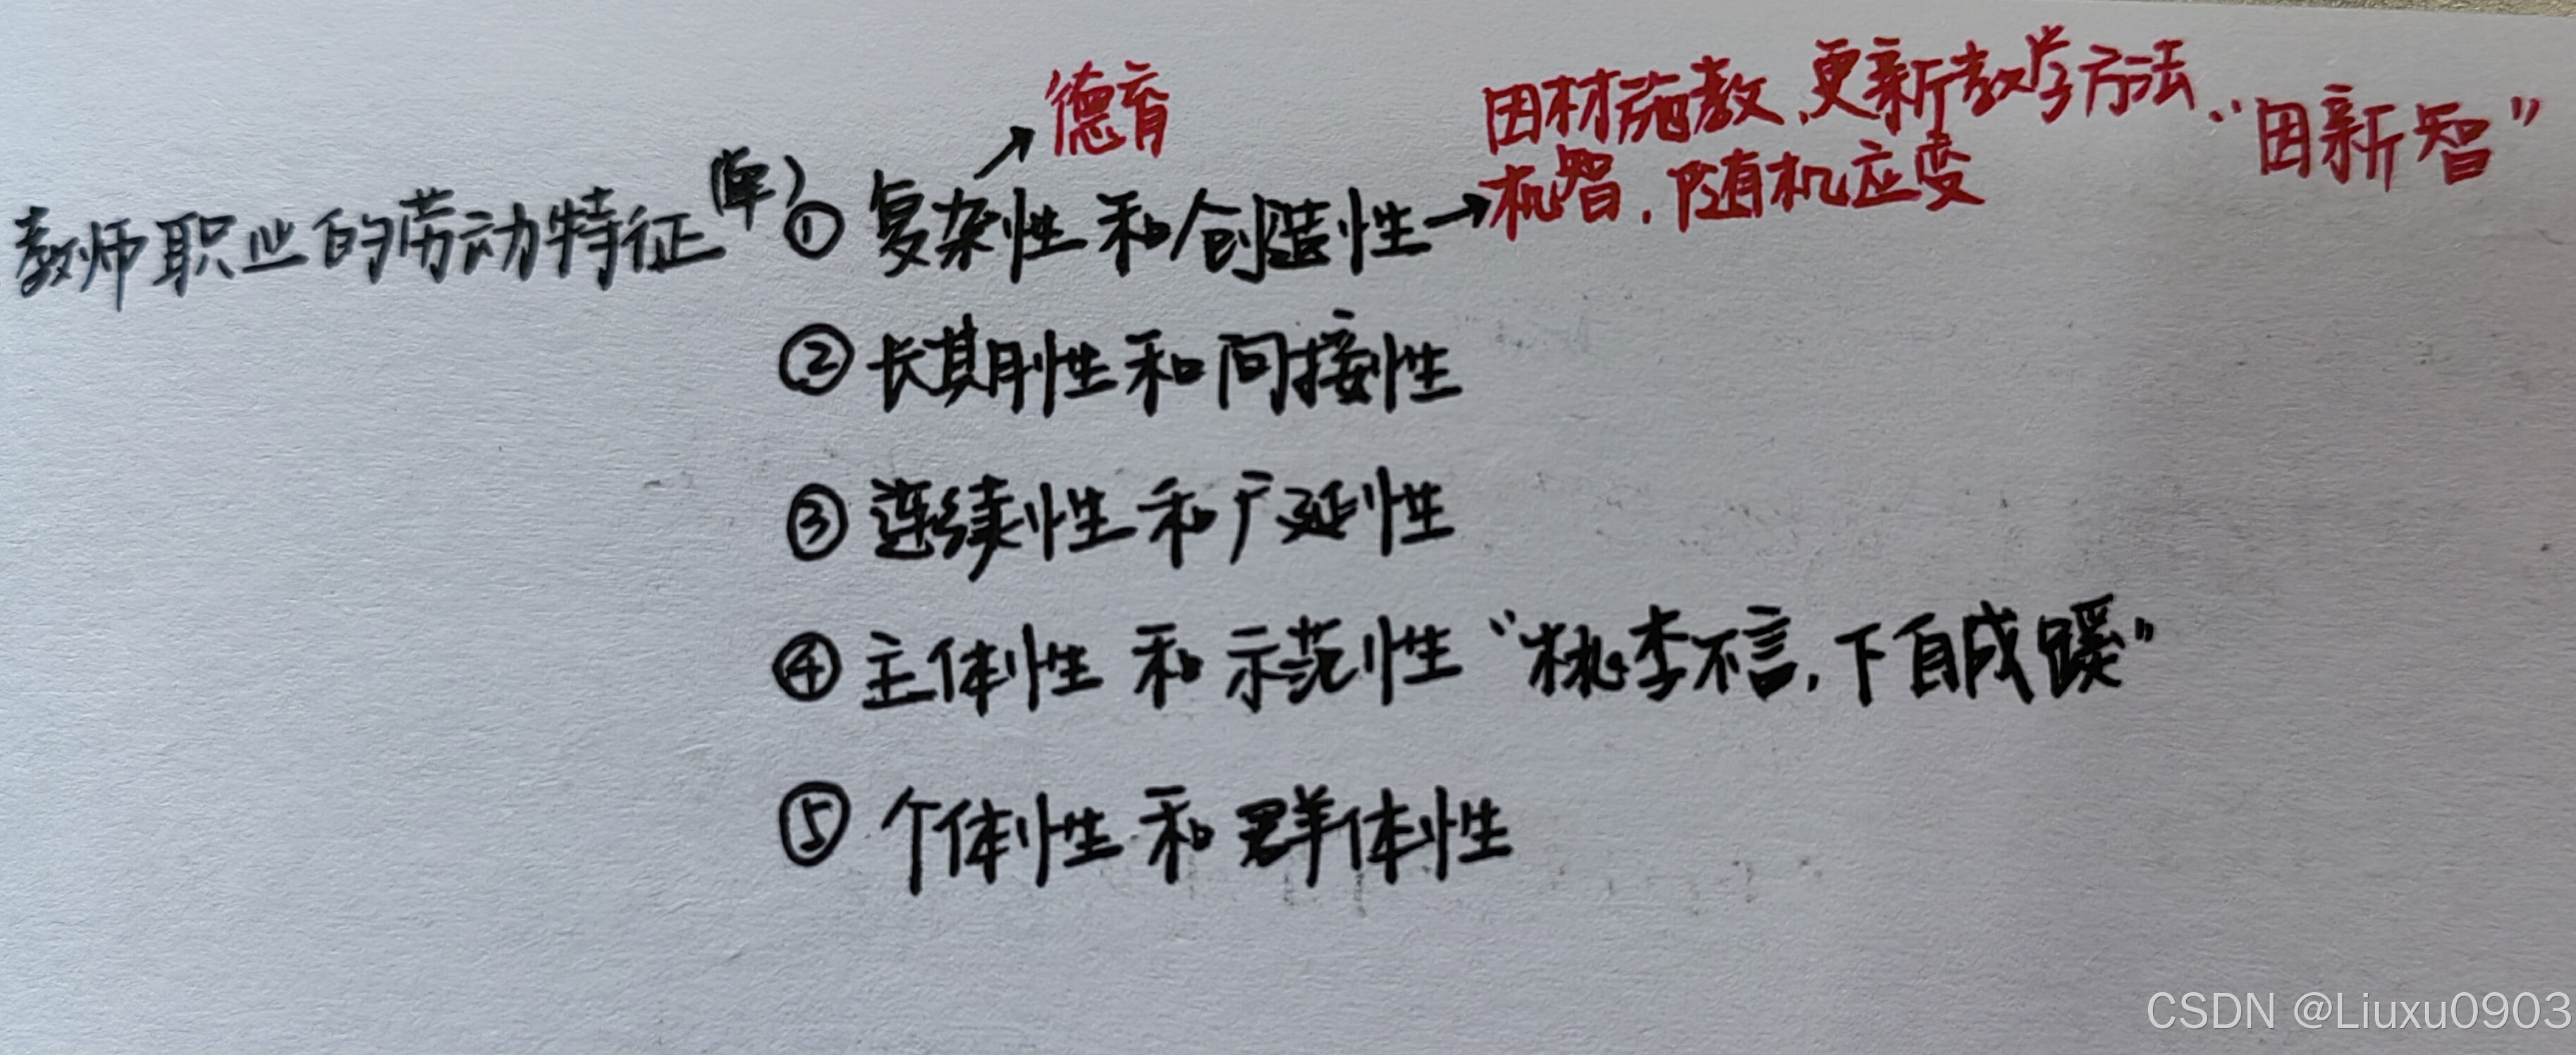 德育
因材施教、更新教学方法
机智，随机应变
“因新智”
教师职业的劳动特征(单)
① 复杂性和创造性→
② 长期性和间接性
③ 连续性和广延性
④ 主体性和示范性“桃李不言，下自成蹊”
⑤ 个体性和群体性
CSDN @Liuxu0903